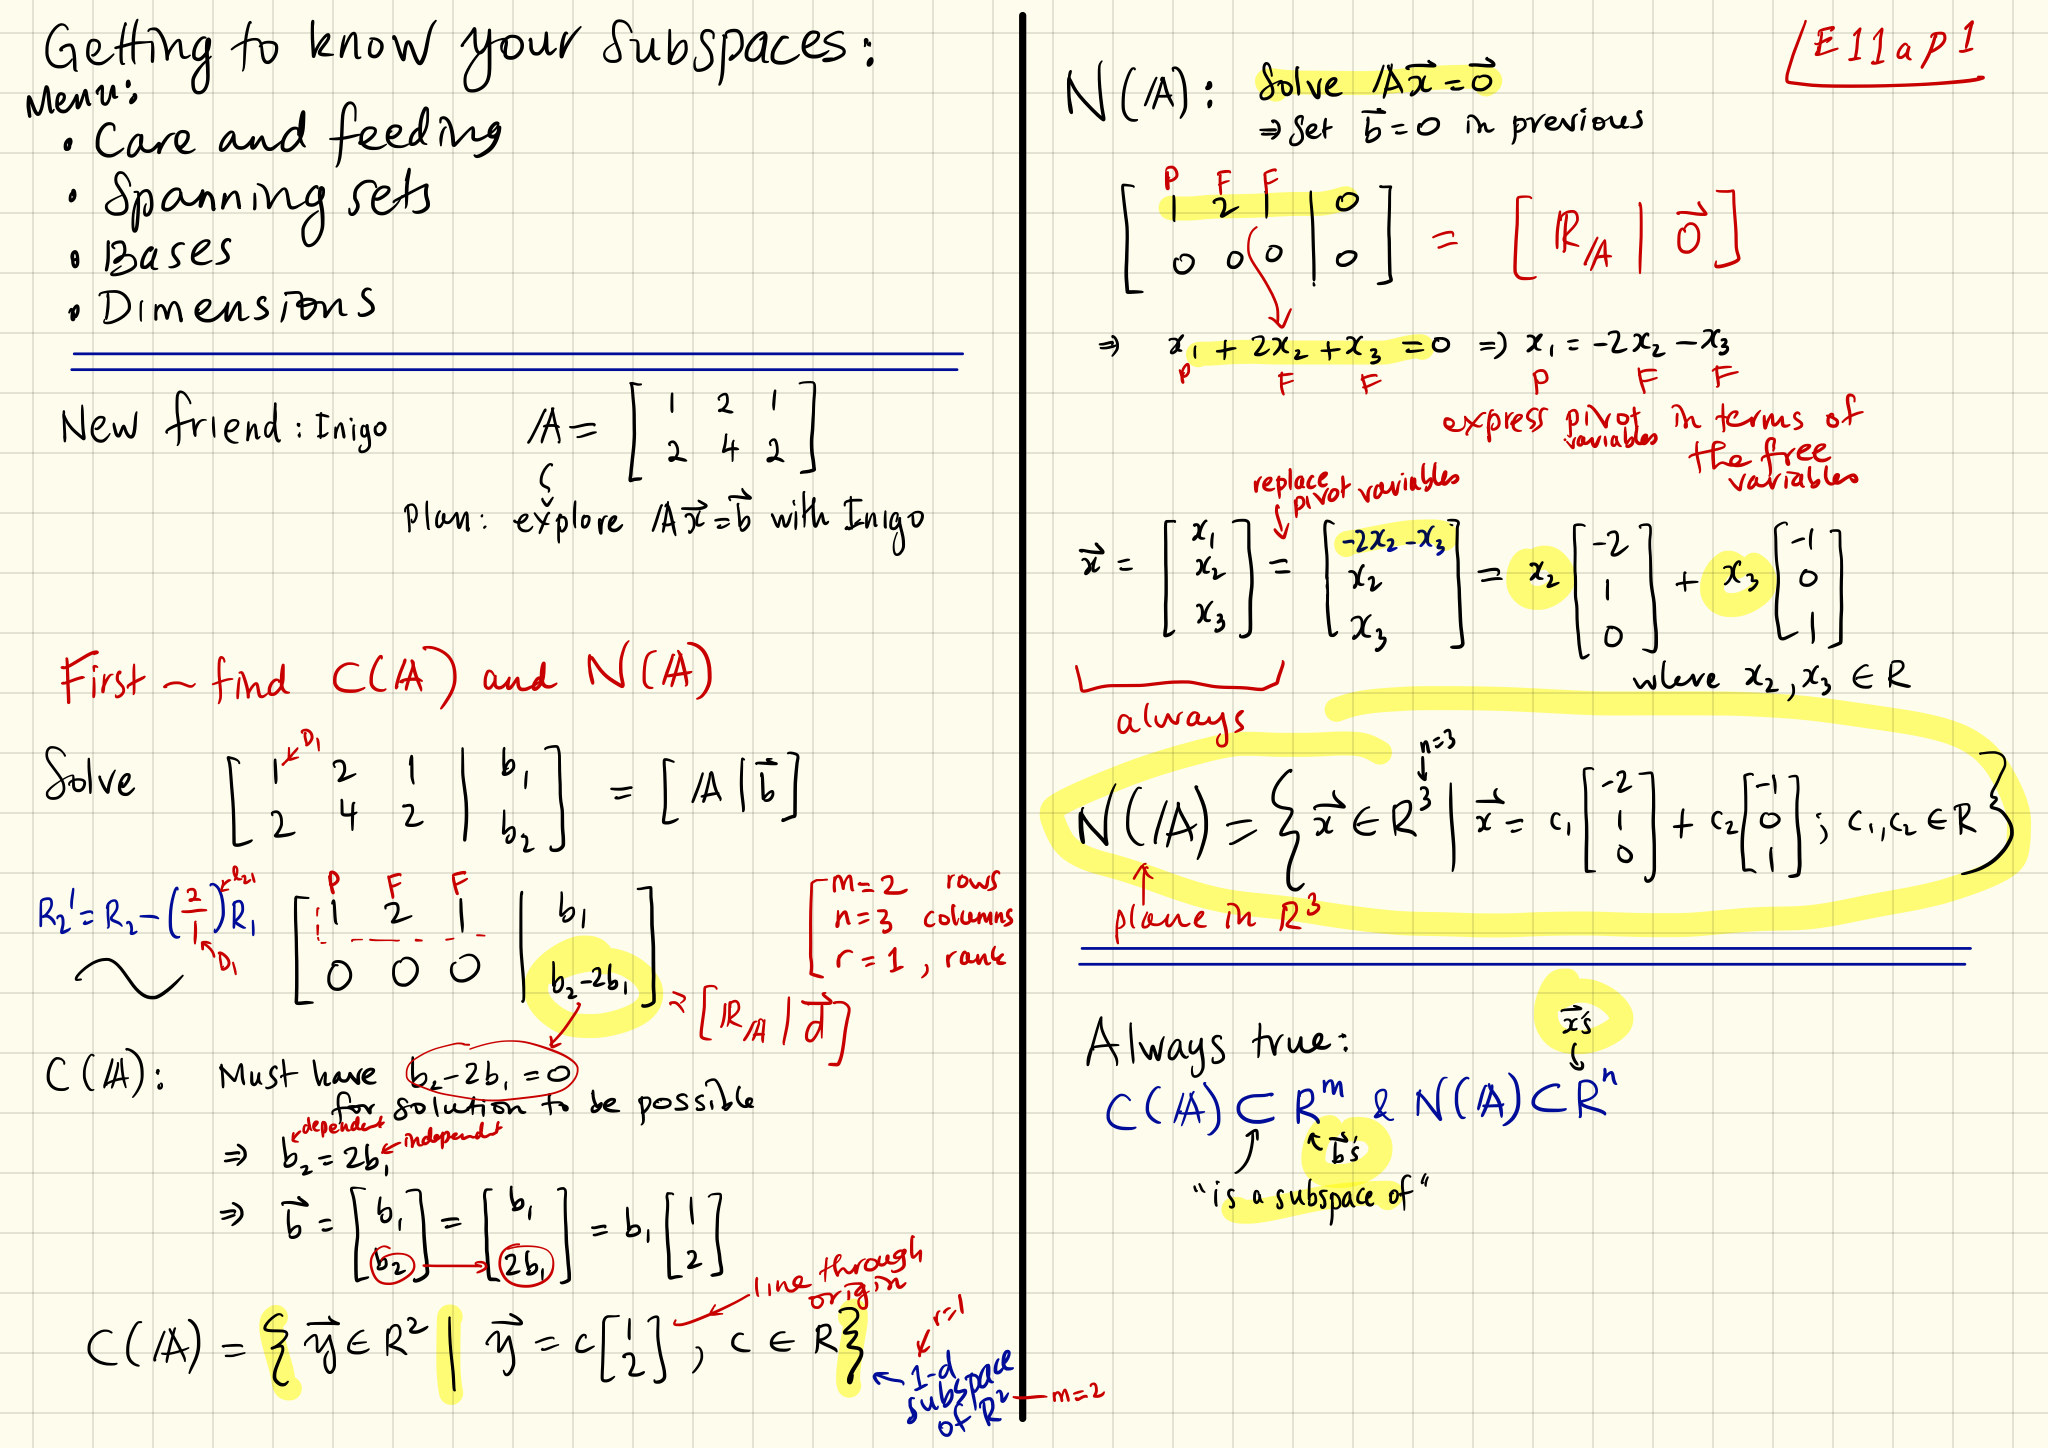 Getting to know your subspaces:
Menu:
• Care and feeding
• Spanning sets
• Bases
• Dimensions
New friend: Inigo
A = [ 1 2 1
2 4 2 ]
Plan: explore Ax⃗ = b⃗ with Inigo
First ~ find C(A) and N(A)
D1
Solve [ 1 2 1 | b1
2 4 2 | b2 ] = [ A | b⃗ ]
R2' = R2 - (2/1) R1
l21
D1
P F F
[ 1 2 1 | b1
0 0 0 | b2-2b1 ] = [ RA | d⃗ ]
m=2 rows
n=3 columns
r=1, rank
C(A): Must have b2-2b1=0
for solution to be possible
dependent independent
⇒ b2 = 2b1
⇒ b⃗ = [ b1
b2 ] = [ b1
2b1 ] = b1 [ 1
2 ]
line through
origin
C(A) = { y⃗ ∈ R² | y⃗ = c [ 1
2 ], c ∈ R }
r=1
1-d
subspace
of R²
m=2
E11ap1
N(A): Solve Ax⃗ = 0⃗
⇒ Set b⃗ = 0 in previous
P F F
[ 1 2 1 | 0
0 0 0 | 0 ] = [ RA | 0⃗ ]
⇒ x1 + 2x2 + x3 = 0 ⇒ x1 = -2x2 - x3
P F F P F F
express pivot variables in terms of
the free
variables
replace
pivot variables
x⃗ = [ x1
x2
x3 ] = [ -2x2 - x3
x2
x3 ] = x2 [ -2
1
0 ] + x3 [ -1
0
1 ]
where x2, x3 ∈ R
always
n=3
N(A) = { x⃗ ∈ R³ | x⃗ = c1 [ -2
1
0 ] + c2 [ -1
0
1 ]; c1, c2 ∈ R }
plane in R³
x⃗'s
Always true:
C(A) ⊂ Rᵐ & N(A) ⊂ Rⁿ
b⃗'s
"is a subspace of"